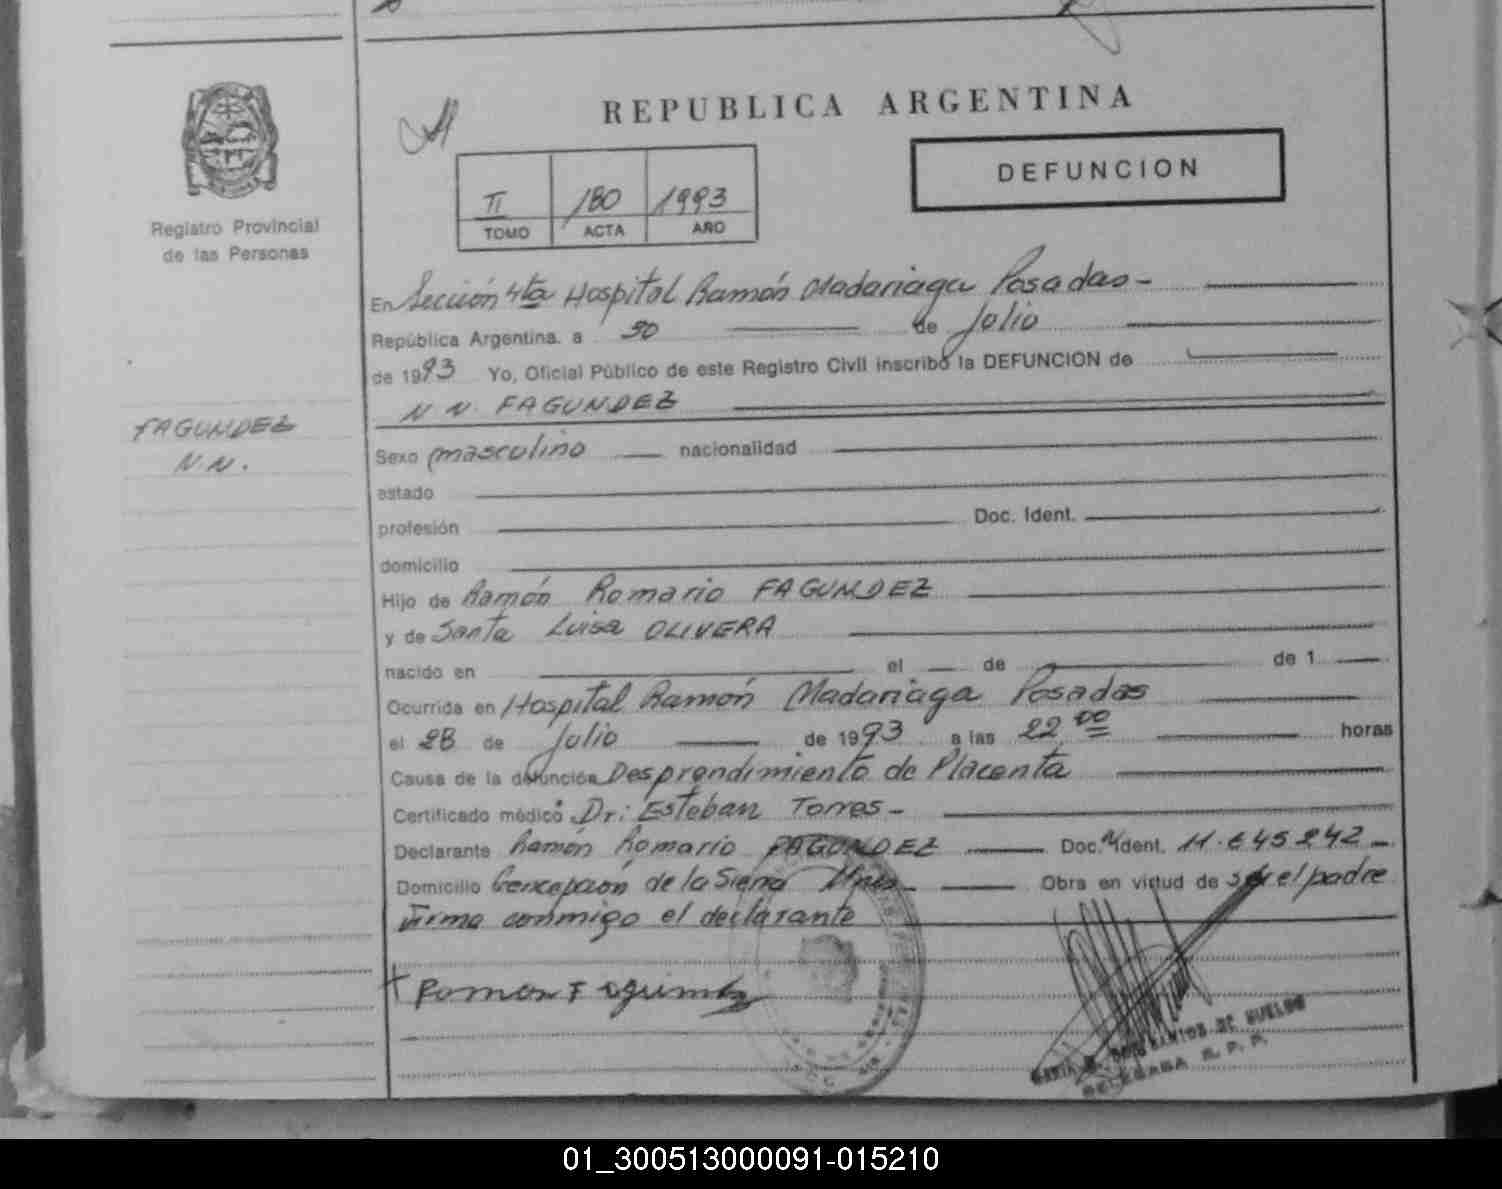 REPUBLICA ARGENTINA
DEFUNCION
II 180 1993
TOMO ACTA AÑO
Registro Provincial
de las Personas
FAGUNDEZ
N.N.
En Sección 4ta Hospital Ramón Madariaga Posadas -
República Argentina. a 30 de Julio
de 1993 Yo, Oficial Público de este Registro Civil inscribo la DEFUNCION de
N N. FAGUNDEZ
Sexo masculino nacionalidad
estado
profesión Doc. Ident.
domicilio
Hijo de Ramón Romario FAGUNDEZ
y de Santa Luisa OLIVERA
nacido en el de de 1
Ocurrida en Hospital Ramón Madariaga Posadas
el 28 de Julio de 1993 a las 22 00 horas
Causa de la defunción Desprendimiento de Placenta
Certificado médico Dr: Esteban Torres -
Declarante Ramón Romario FAGUNDEZ Doc. Ident. 11.645242 -
Domicilio Concepción de la Sierra Mnes - Obra en virtud de ser el padre
Firma conmigo el declarante
Ramon Fagundez
DELEGADA R. P. P.
01_300513000091-015210